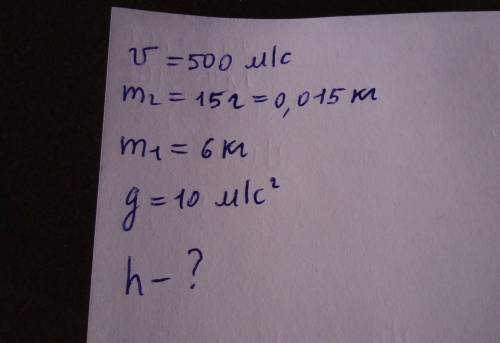 v = 500 м/с
m₂ = 15г = 0,015 кг
m₁ = 6 кг
g = 10 м/с²
h - ?